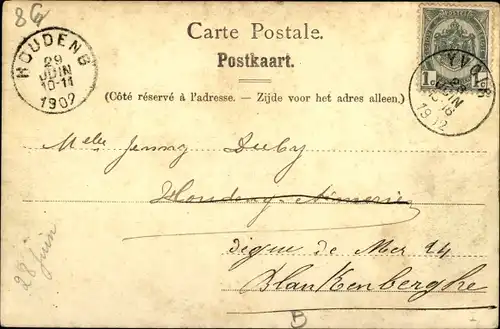 8G
Carte Postale.
Postkaart.
(Côté réservé à l'adresse. – Zijde voor het adres alleen.)
HOUDENG
29
JUIN
10-11
1902
YVOIR
28
JUIN
16
1902
1c 1c
Melle Jenny Duby
Houdeng-Aimeries
digue de Mer 24
Blankenberghe
28 juin
B